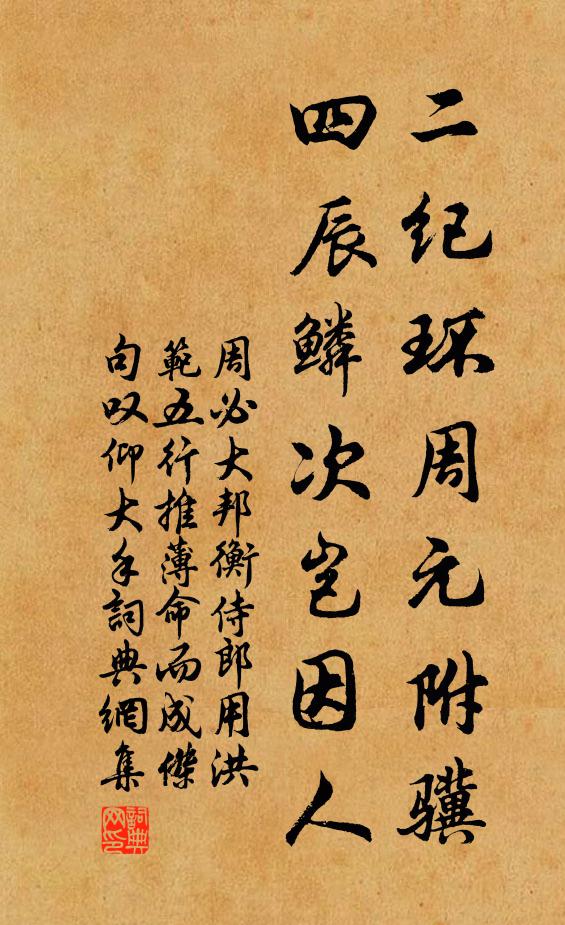 二纪环周元附骥
四辰鳞次岂因人
周必大邦衡侍郎用洪
範五行推薄命而成傑
句叹仰大手詞典網集
詞典
网印